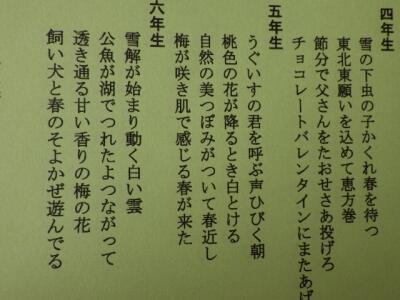 四年生
雪の下虫の子かくれ春を待つ
東北東願いを込めて恵方巻
節分で父さんをたおせさあ投げろ
チョコレートバレンタインにまたあげ
五年生
うぐいすの君を呼ぶ声ひびく朝
桃色の花が降るとき白とける
自然の美つぼみがついて春近し
梅が咲き肌で感じる春が来た
六年生
雪解が始まり動く白い雲
公魚が湖でつれたよつながって
透き通る甘い香りの梅の花
飼い犬と春のそよかぜ遊んでる